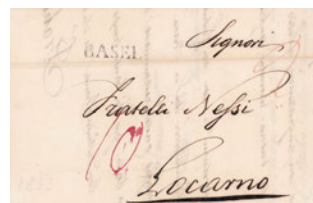 BASEL
Signori
Fratelli Nessi
10
Locarno